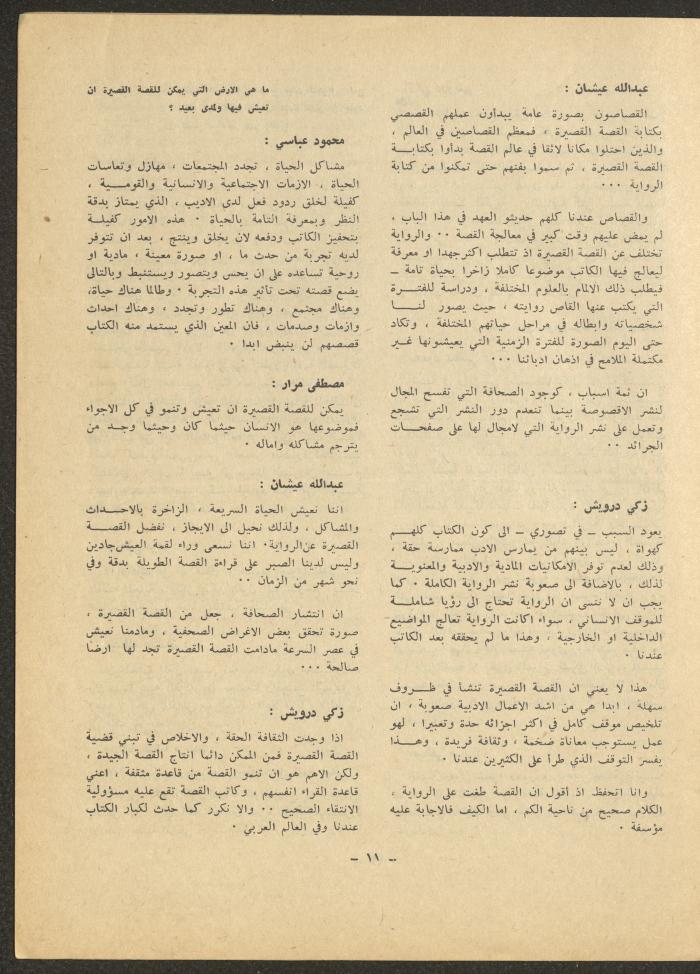 عبدالله عيشان :
القصاصون بصورة عامة يبدأون عملهم القصصي
بكتابة القصة القصيرة ، فمعظم القصاصين في العالم ،
والذين احتلوا مكانا لائقا في عالم القصة بدأوا بكتابـــة
القصة القصيرة ، ثم سموا بفنهم حتى تمكنوا من كتابة
الرواية ٠٠٠
والقصاص عندنا كلهم حديثو العهد في هذا الباب ،
لم يمض عليهم وقت كبير في معالجة القصة ٠٠ والرواية
تختلف عن القصة القصيرة اذ تتطلب اكثرجهدا او معرفة
ليعالج فيها الكاتب موضوعا كاملا زاخرا بحياة تامة ــ
فيطلب ذلك الالمام بالعلوم المختلفة ، ودراسة للفتــرة
التي يكتب عنها القاص روايته ، حيث يصور لنــــا
شخصياته وابطاله في مراحل حياتهم المختلفة ، وتكاد
حتى اليوم الصورة للفترة الزمنية التي يعيشونها غـير
مكتملة الملامح في اذهان ادبائنا ٠٠٠
ان ثمة اسباب ، كوجود الصحافة التي تفسح المجال
لنشر الاقصوصة بينما تنعدم دور النشر التي تشجع
وتعمل على نشر الرواية التي لامجال لها على صفحــات
الجرائد ٠٠
زكي درويش :
يعود السبب ــ في تصوري ــ الى كون الكتاب كلهــم
كهواة ، ليس بينهم من يمارس الادب ممارسة حقة ،
وذلك لعدم توفر الامكانيات المادية والادبية والمعنويــة
لذلك ، بالاضافة الى صعوبة نشر الرواية الكاملة ٠ كما
يجب ان لا ننسى ان الرواية تحتاج الى رؤيا شاملــة
للموقف الانساني ، سواء اكانت الرواية تعالج المواضيع
الداخلية او الخارجية ، وهذا ما لم يحققه بعد الكاتب
عندنا ٠
هذا لا يعني ان القصة القصيرة تنشأ في ظــروف
سهلة ، ابدا هي من اشد الاعمال الادبية صعوبة ، ان
تلخيص موقف كامل في اكثر اجزائه حدة وتعبيرا ، لهو
عمل يستوجب معاناة ضخمة ، وثقافة فريدة ، وهــذا
يفسر التوقف الذي طرأ على الكثيرين عندنا ٠
وانا اتحفظ اذ أقول ان القصة طغت على الرواية ،
الكلام صحيح من ناحية الكم ، اما الكيف فالاجابة عليه
مؤسفة ٠
ما هي الارض التي يمكن للقصة القصيرة ان
تعيش فيها ولمدى بعيد ؟
محمود عباسي :
مشاكل الحياة ، تجدد المجتمعات ، مهازل وتعاسات
الحياة ، الازمات الاجتماعية والانسانية والقوميــة ،
كفيلة لخلق ردود فعل لدى الاديب ، الذي يمتاز بدقة
النظر وبمعرفة التامة بالحياة ٠ هذه الامور كفيلــة
بتحفيز الكاتب ودفعه لان يخلق وينتج ، بعد ان تتوفر
لديه تجربة من حدث ما ، او صورة معينة ، مادية او
روحية تساعده على ان يحس ويتصور ويستنبط وبالتالى
يضع قصته تحت تأثير هذه التجربة ٠ وطالما هناك حياة،
وهناك مجتمع ، وهناك تطور وتجدد ، وهناك احداث
وازمات وصدمات ، فان المعين الذي يستمد منه الكتاب
قصصهم لن ينبض ابدا ٠
مصطفى مرار :
يمكن للقصة القصيرة ان تعيش وتنمو في كل الاجواء
فموضوعها هو الانسان حيثما كان وحيثما وجـد من
يترجم مشاكله واماله ٠
عبدالله عيشان :
اننا نعيش الحياة السريعة ، الزاخرة بالاحــداث
والمشاكل ، ولذلك نحيل الى الايجاز ، نفضل القصــة
القصيرة عن‌الرواية٠ اننا نسعى وراء لقمة العيش‌جادين
وليس لدينا الصبر على قراءة القصة الطويلة بدقة وفي
نحو شهر من الزمان ٠٠
ان انتشار الصحافة ، جعل من القصة القصيرة ،
صورة تحقق بعض الاغراض الصحفية ، ومادمنا نعيش
في عصر السرعة مادامت القصة القصيرة تجد لها ارضا
صالحة ٠٠٠
زكي درويش :
اذا وجدت الثقافة الحقة ، والاخلاص في تبني قضية
القصة القصيرة فمن الممكن دائما انتاج القصة الجيدة ،
ولكن الاهم هو ان تنمو القصة من قاعدة مثقفة ، اعني
قاعدة القراء انفسهم ، وكاتب القصة تقع عليه مسؤولية
الانتقاء الصحيح ٠٠ والا نكرر كما حدث لكبار الكتاب
عندنا وفي العالم العربي ٠
– ١١ –